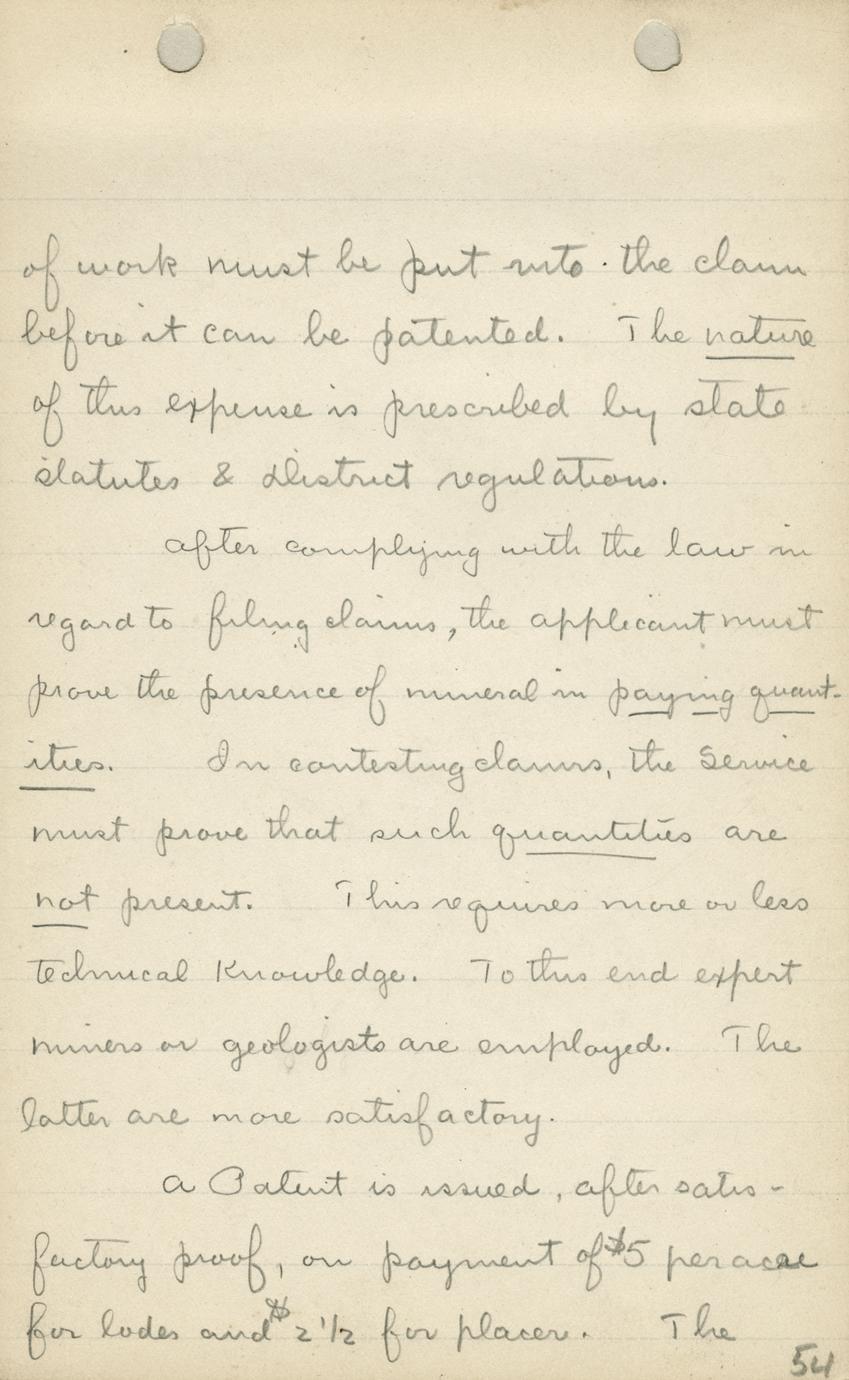 of work must be put into the claim
before it can be patented. The nature
of this expense is prescribed by state
statutes & district regulations.
after complying with the law in
regard to filing claims, the applicant must
prove the presence of mineral in paying quant-
ities. In contesting claims, the Service
must prove that such quantities are
not present. This requires more or less
technical Knowledge. To this end expert
miners or geologists are employed. The
latter are more satisfactory.
a Patent is issued, after satis-
factory proof, on payment of $5 per acre
for lodes and $2 1/2 for placer. The
54